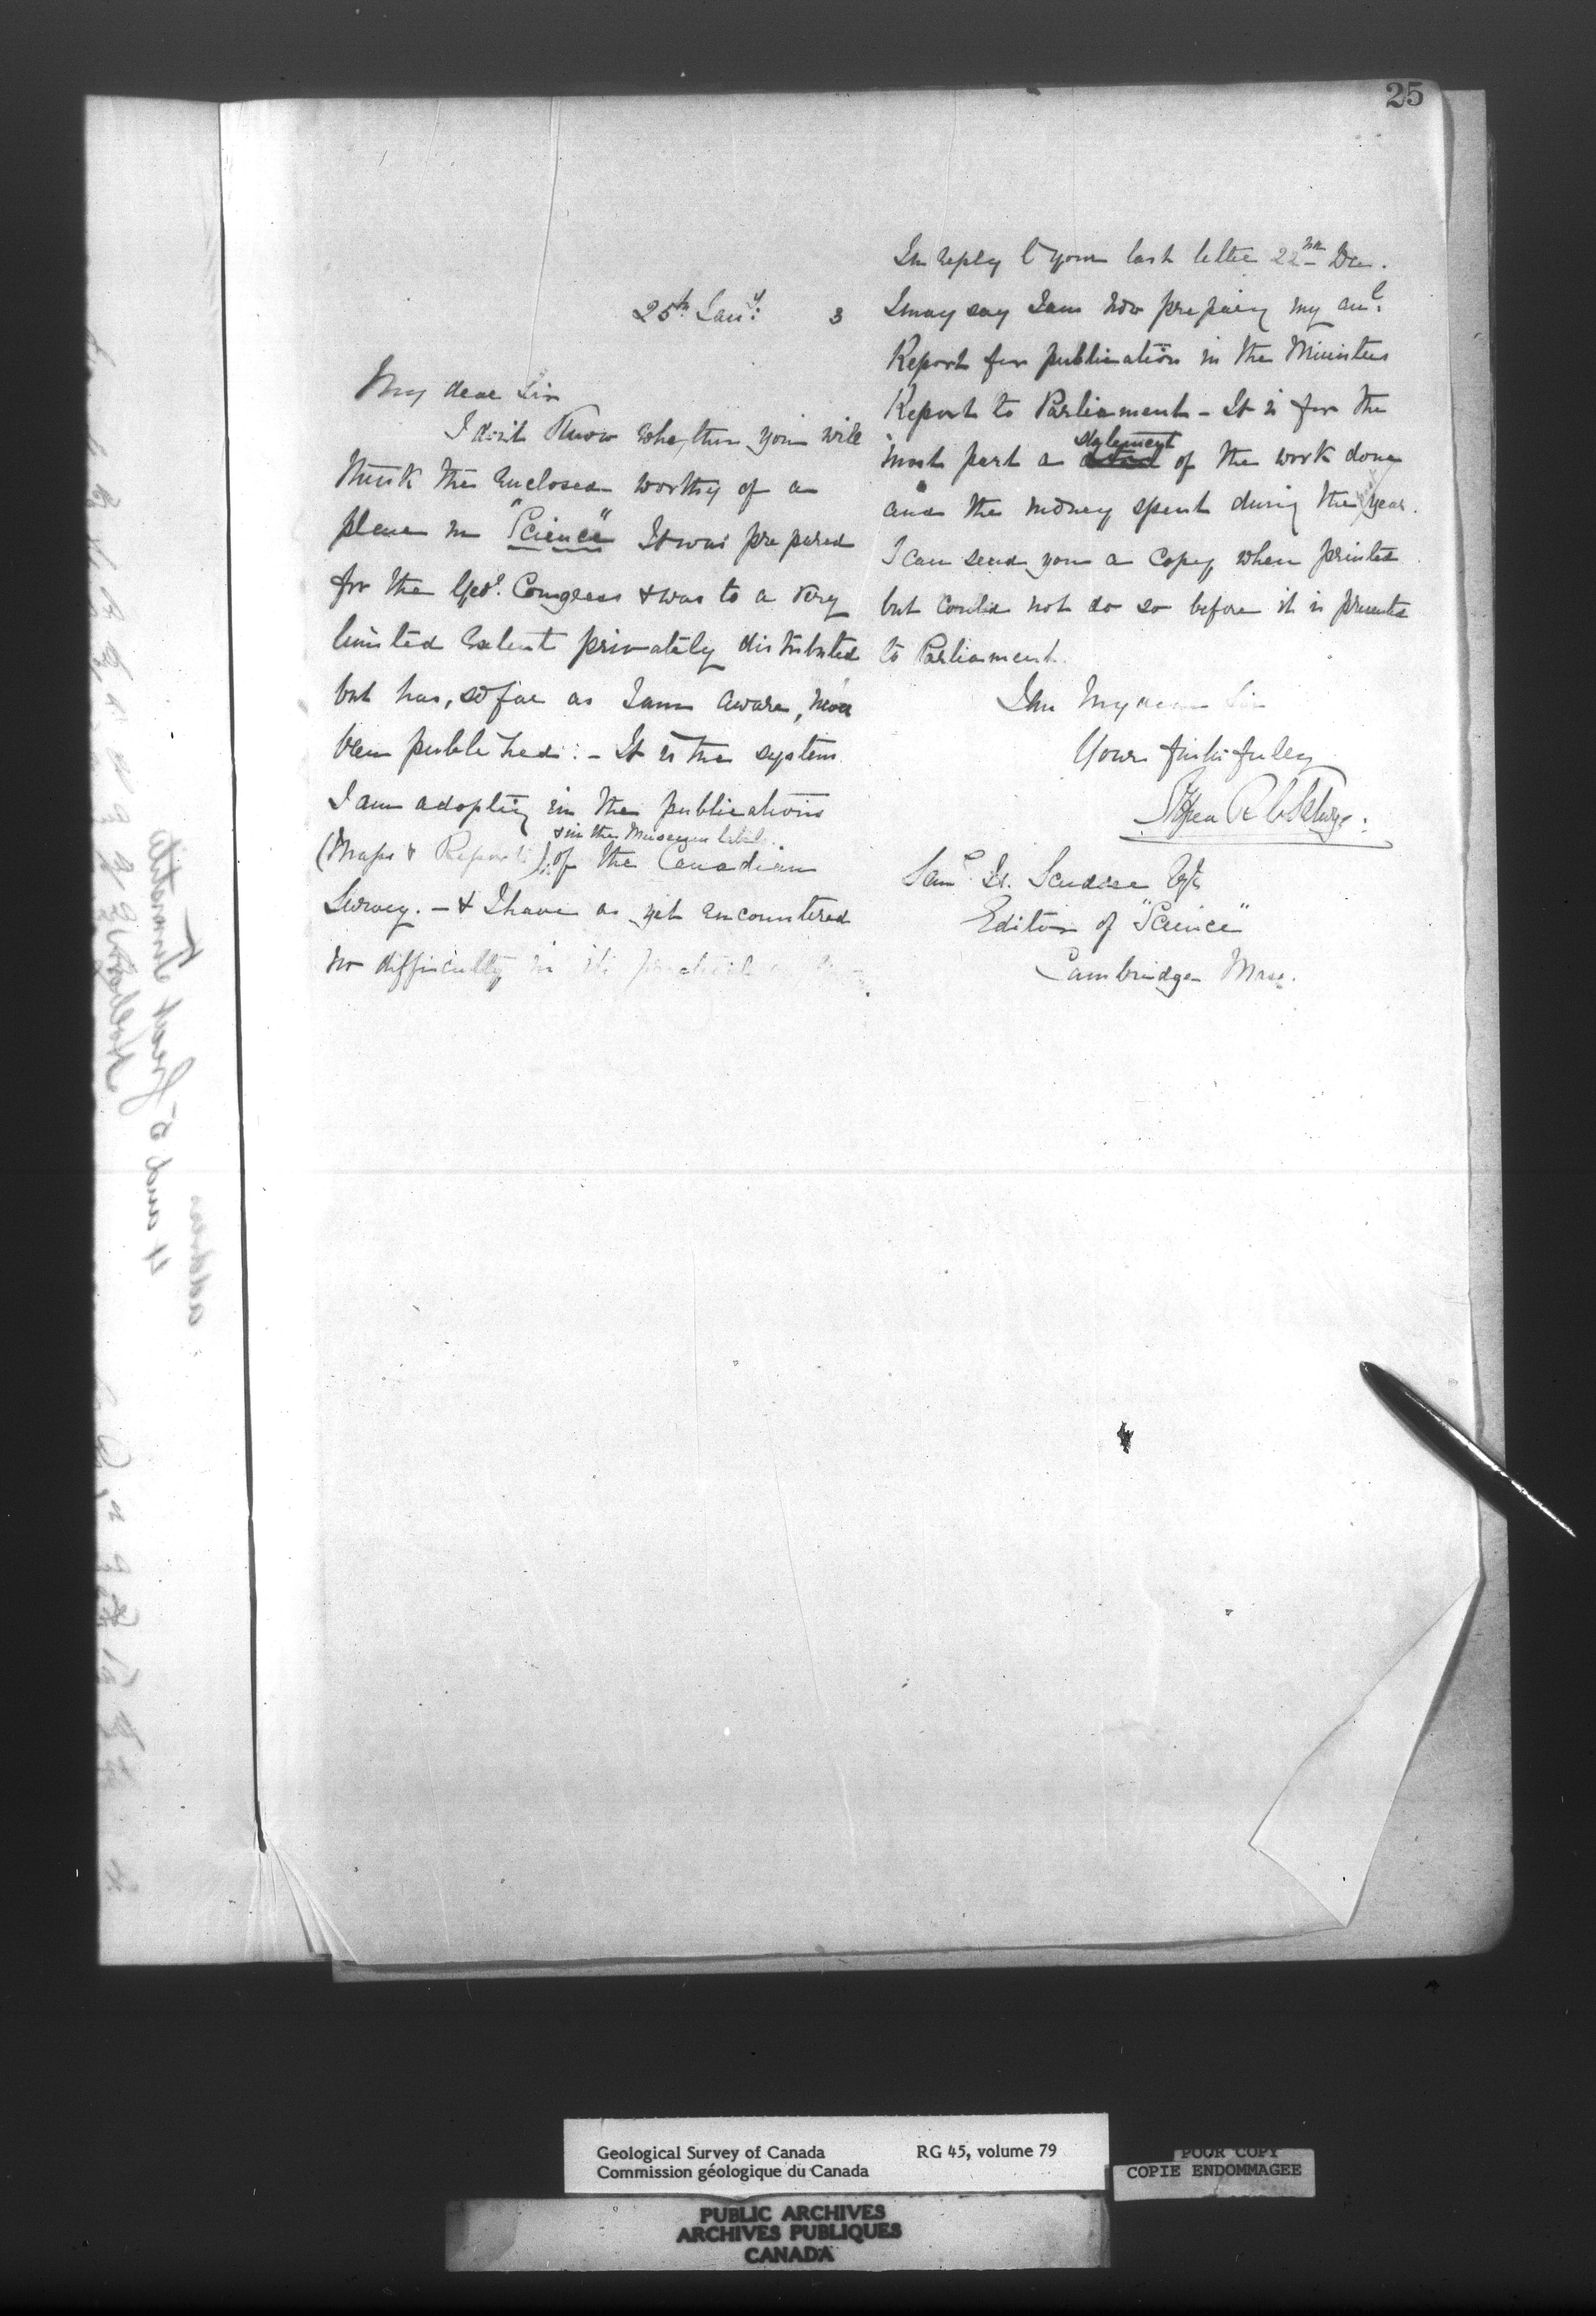 25
25th Jany. 3
My dear Sir
I don't Know whether you will
think the Enclosed worthy of a
place in "Science" It was prepared
for the Geol. Congress & was to a very
limited Extent privately distributed
but has, so far as I am aware, never
been published: - It is the system
I am adopting in the publications
& in the Museum label
(Maps & Reports) of the Canadian
Survey. - & I have as yet encountered
no difficulty in its practical
In reply to your last letter 22nd Dec.
I may say I am now preparing my anl.
Report for publication in the Ministers
Report to Parliament - It is for the
most part a statement of the work done
and the money spent during the year.
I can send you a Copy when printed
but could not do so before it is presented
to Parliament.
I am My dear Sir
Yours faithfully
Alfred R C Selwyn
Saml. H. Scudder Esq
Editor of "Science"
Cambridge Mass.
Geological Survey of Canada RG 45, volume 79
Commission géologique du Canada
POOR COPY
COPIE ENDOMMAGEE
PUBLIC ARCHIVES
ARCHIVES PUBLIQUES
CANADA